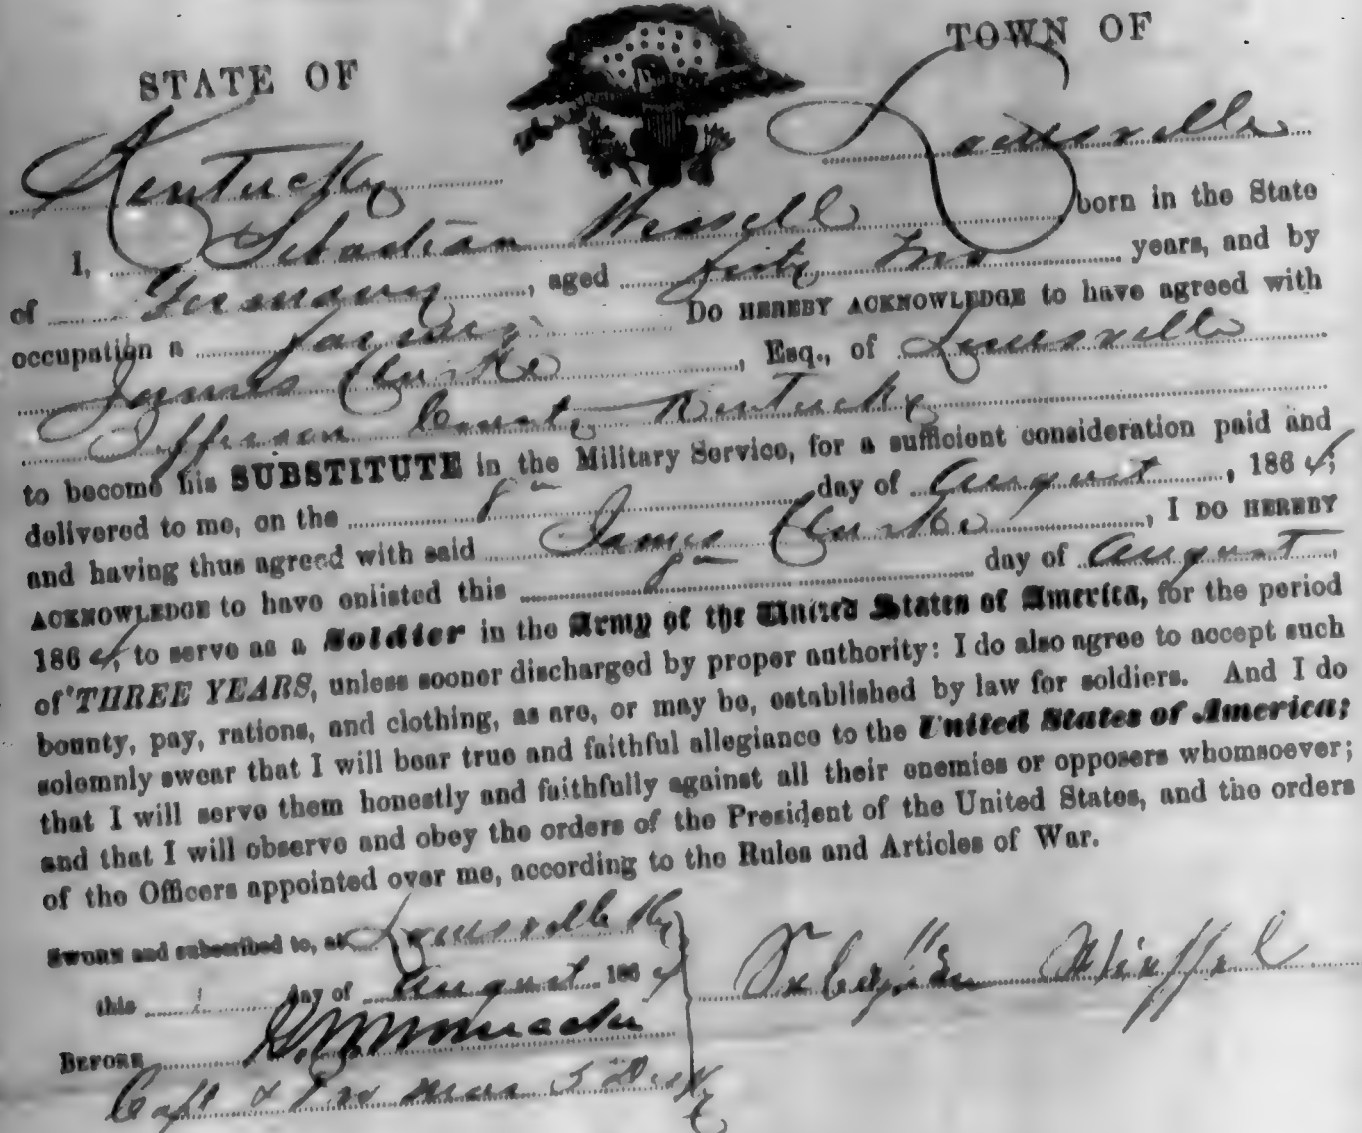 STATE OF
TOWN OF
Kentucky
Louisville
I, Sebastian Wessell born in the State
of Germany, aged forty two years, and by
occupation a farmer Do HEREBY ACKNOWLEDGE to have agreed with
James Clarke, Esq., of Louisville
Jefferson County Kentucky
to become his SUBSTITUTE in the Military Service, for a sufficient consideration paid and
delivered to me, on the day of August, 1864;
and having thus agreed with said James Clarke, I DO HEREBY
ACKNOWLEDGE to have enlisted this day of August,
1864, to serve as a Soldier in the Army of the United States of America, for the period
of THREE YEARS, unless sooner discharged by proper authority: I do also agree to accept such
bounty, pay, rations, and clothing, as are, or may be, established by law for soldiers. And I do
solemnly swear that I will bear true and faithful allegiance to the United States of America;
that I will serve them honestly and faithfully against all their enemies or opposers whomsoever;
and that I will observe and obey the orders of the President of the United States, and the orders
of the Officers appointed over me, according to the Rules and Articles of War.
SWORN and subscribed to, at Louisville Ky
this day of August 1864
BEFORE
Capt & Pro Mar 5 Dist Ky